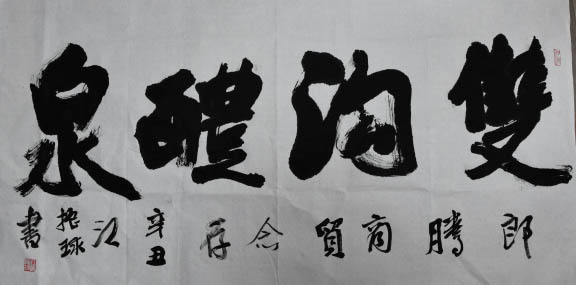 雙沟醴泉
郎騰商貿念存 辛丑 江振球書